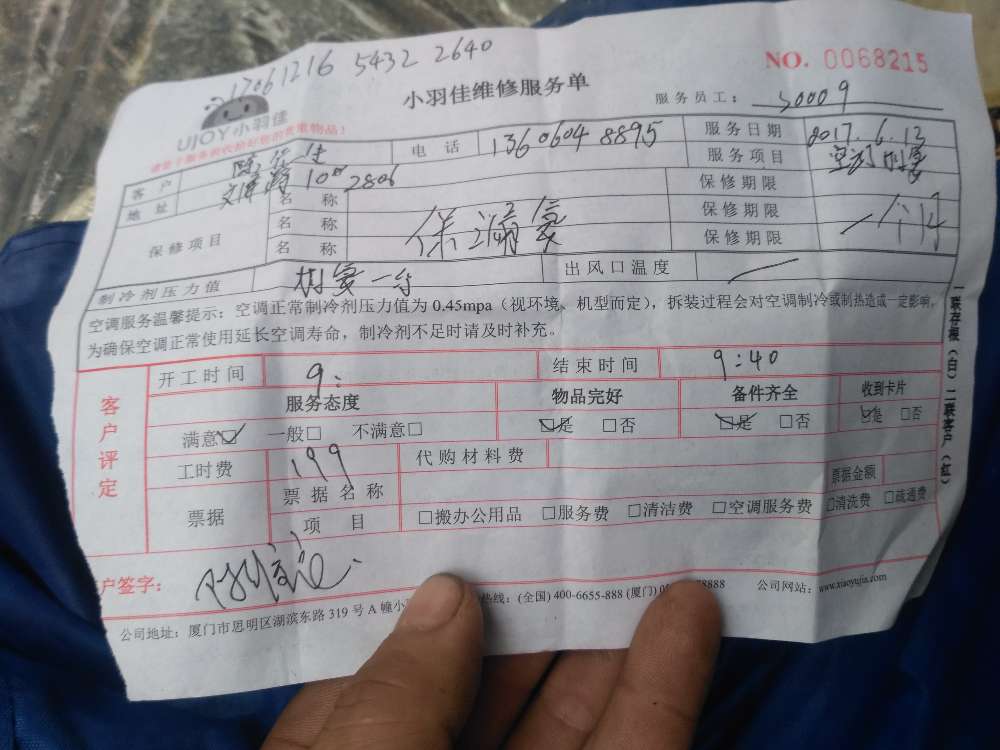 17061216 5432 2640
NO. 0068215
小羽佳维修服务单
UJOY小羽佳
服务员工: S0009
客户
电话 1360604 8895
服务日期 2017.6.13
地址 10# 2806
服务项目 空调
保修项目
名称
保修期限
名称
保修期限 一个月
名称
保修期限
制冷剂压力值
出风口温度
空调服务温馨提示: 空调正常制冷剂压力值为 0.45mpa (视环境、机型而定), 拆装过程会对空调制冷或制热造成一定影响,
为确保空调正常使用延长空调寿命, 制冷剂不足时请及时补充。
一联存根(白) 二联客户(红)
客户评定
开工时间 9:
结束时间 9:40
服务态度
物品完好
备件齐全
收到卡片
满意☑ 一般□ 不满意□
☑是 □否
☑是 □否
☑是 □否
工时费 199
代购材料费
票据
票据名称
票据金额
项目
□搬办公用品 □服务费 □清洁费 □空调服务费 □清洗费 □疏通费
户签字:
公司地址: 厦门市思明区湖滨东路 319 号 A 幢小
热线: (全国) 400-6655-888 (厦门)
8888
公司网站: www.xiaoyujia.com